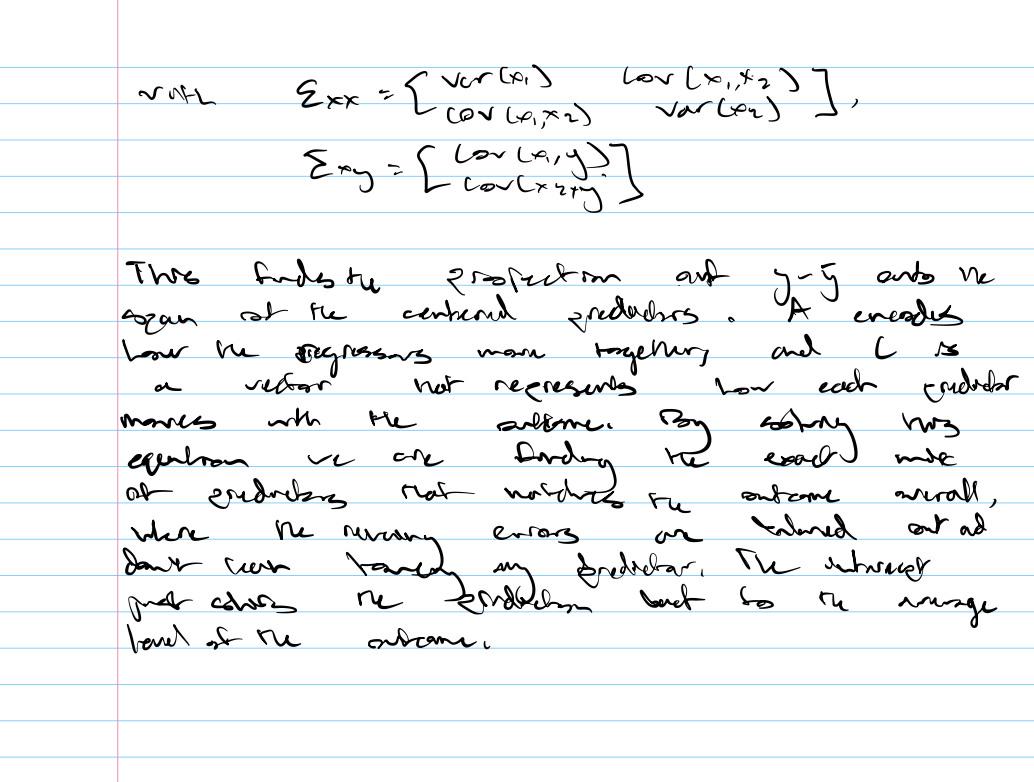 with Σxx = [ var(x₁) cov(x₁,x₂)
cov(x₁,x₂) var(x₂) ] ,
Σxy = [ cov(x₁,y)
cov(x₂,y) ]
This finds the projection of y-ȳ onto the
span of the centered predictors. A encodes
how the regressors move together, and C is
a vector that represents how each predictor
moves with the outcome. By solving this
equation we are finding the exact mix
of predictors that matches the outcome overall,
where the errors are out and
don't lean any predictor. The intercept
just the prediction back to the average
level of the outcome.